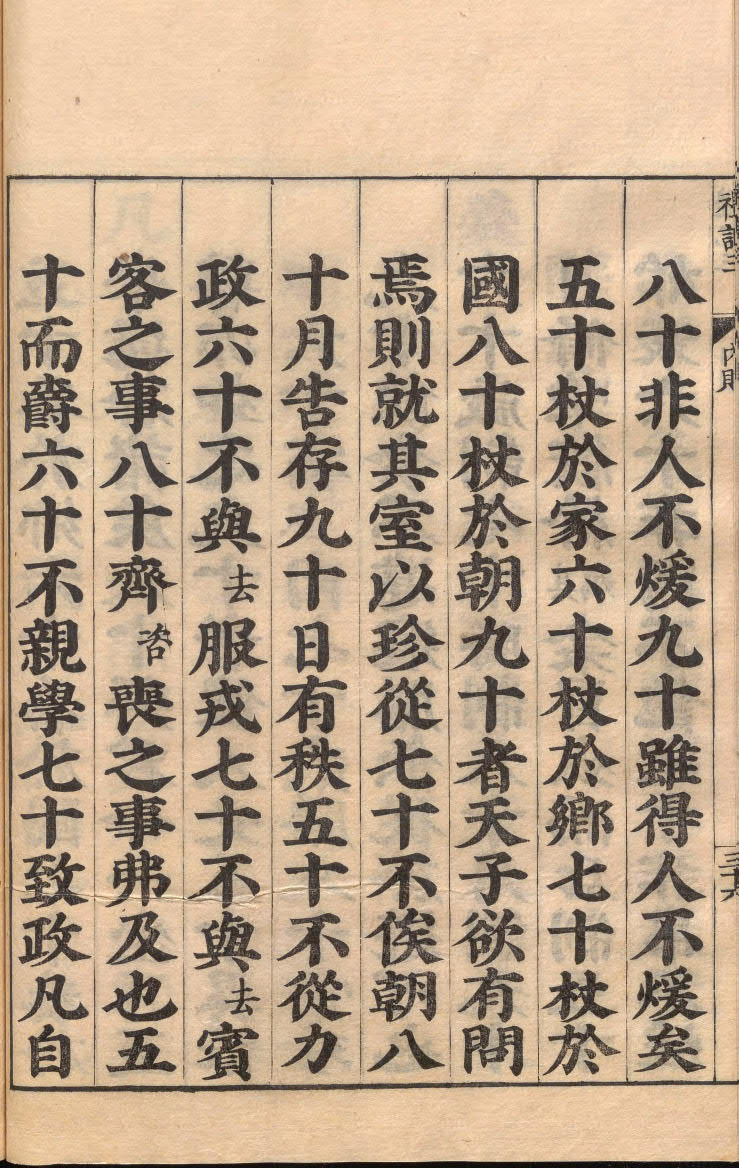 八十非人不煖九十雖得人不煖矣
五十杖於家六十杖於鄉七十杖於
國八十杖於朝九十者天子欲有問
焉則就其室以珍從七十不俟朝八
十月告存九十日有秩五十不從力
政六十不與去服戎七十不與去賓
客之事八十齊咨喪之事弗及也五
十而爵六十不親學七十致政凡自
內則
三十六